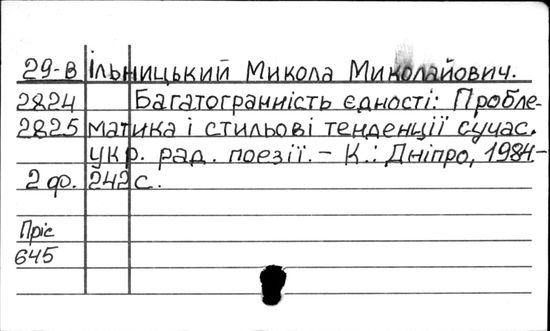 29-В Ільницький Микола Миколайович.
2824 Багатогранність єдності: Пробле-
2825 матика і стильові тенденції сучас.
укр. рад. поезії. – К.: Дніпро, 1984-
2 ф. 242 с.
Пріс
645